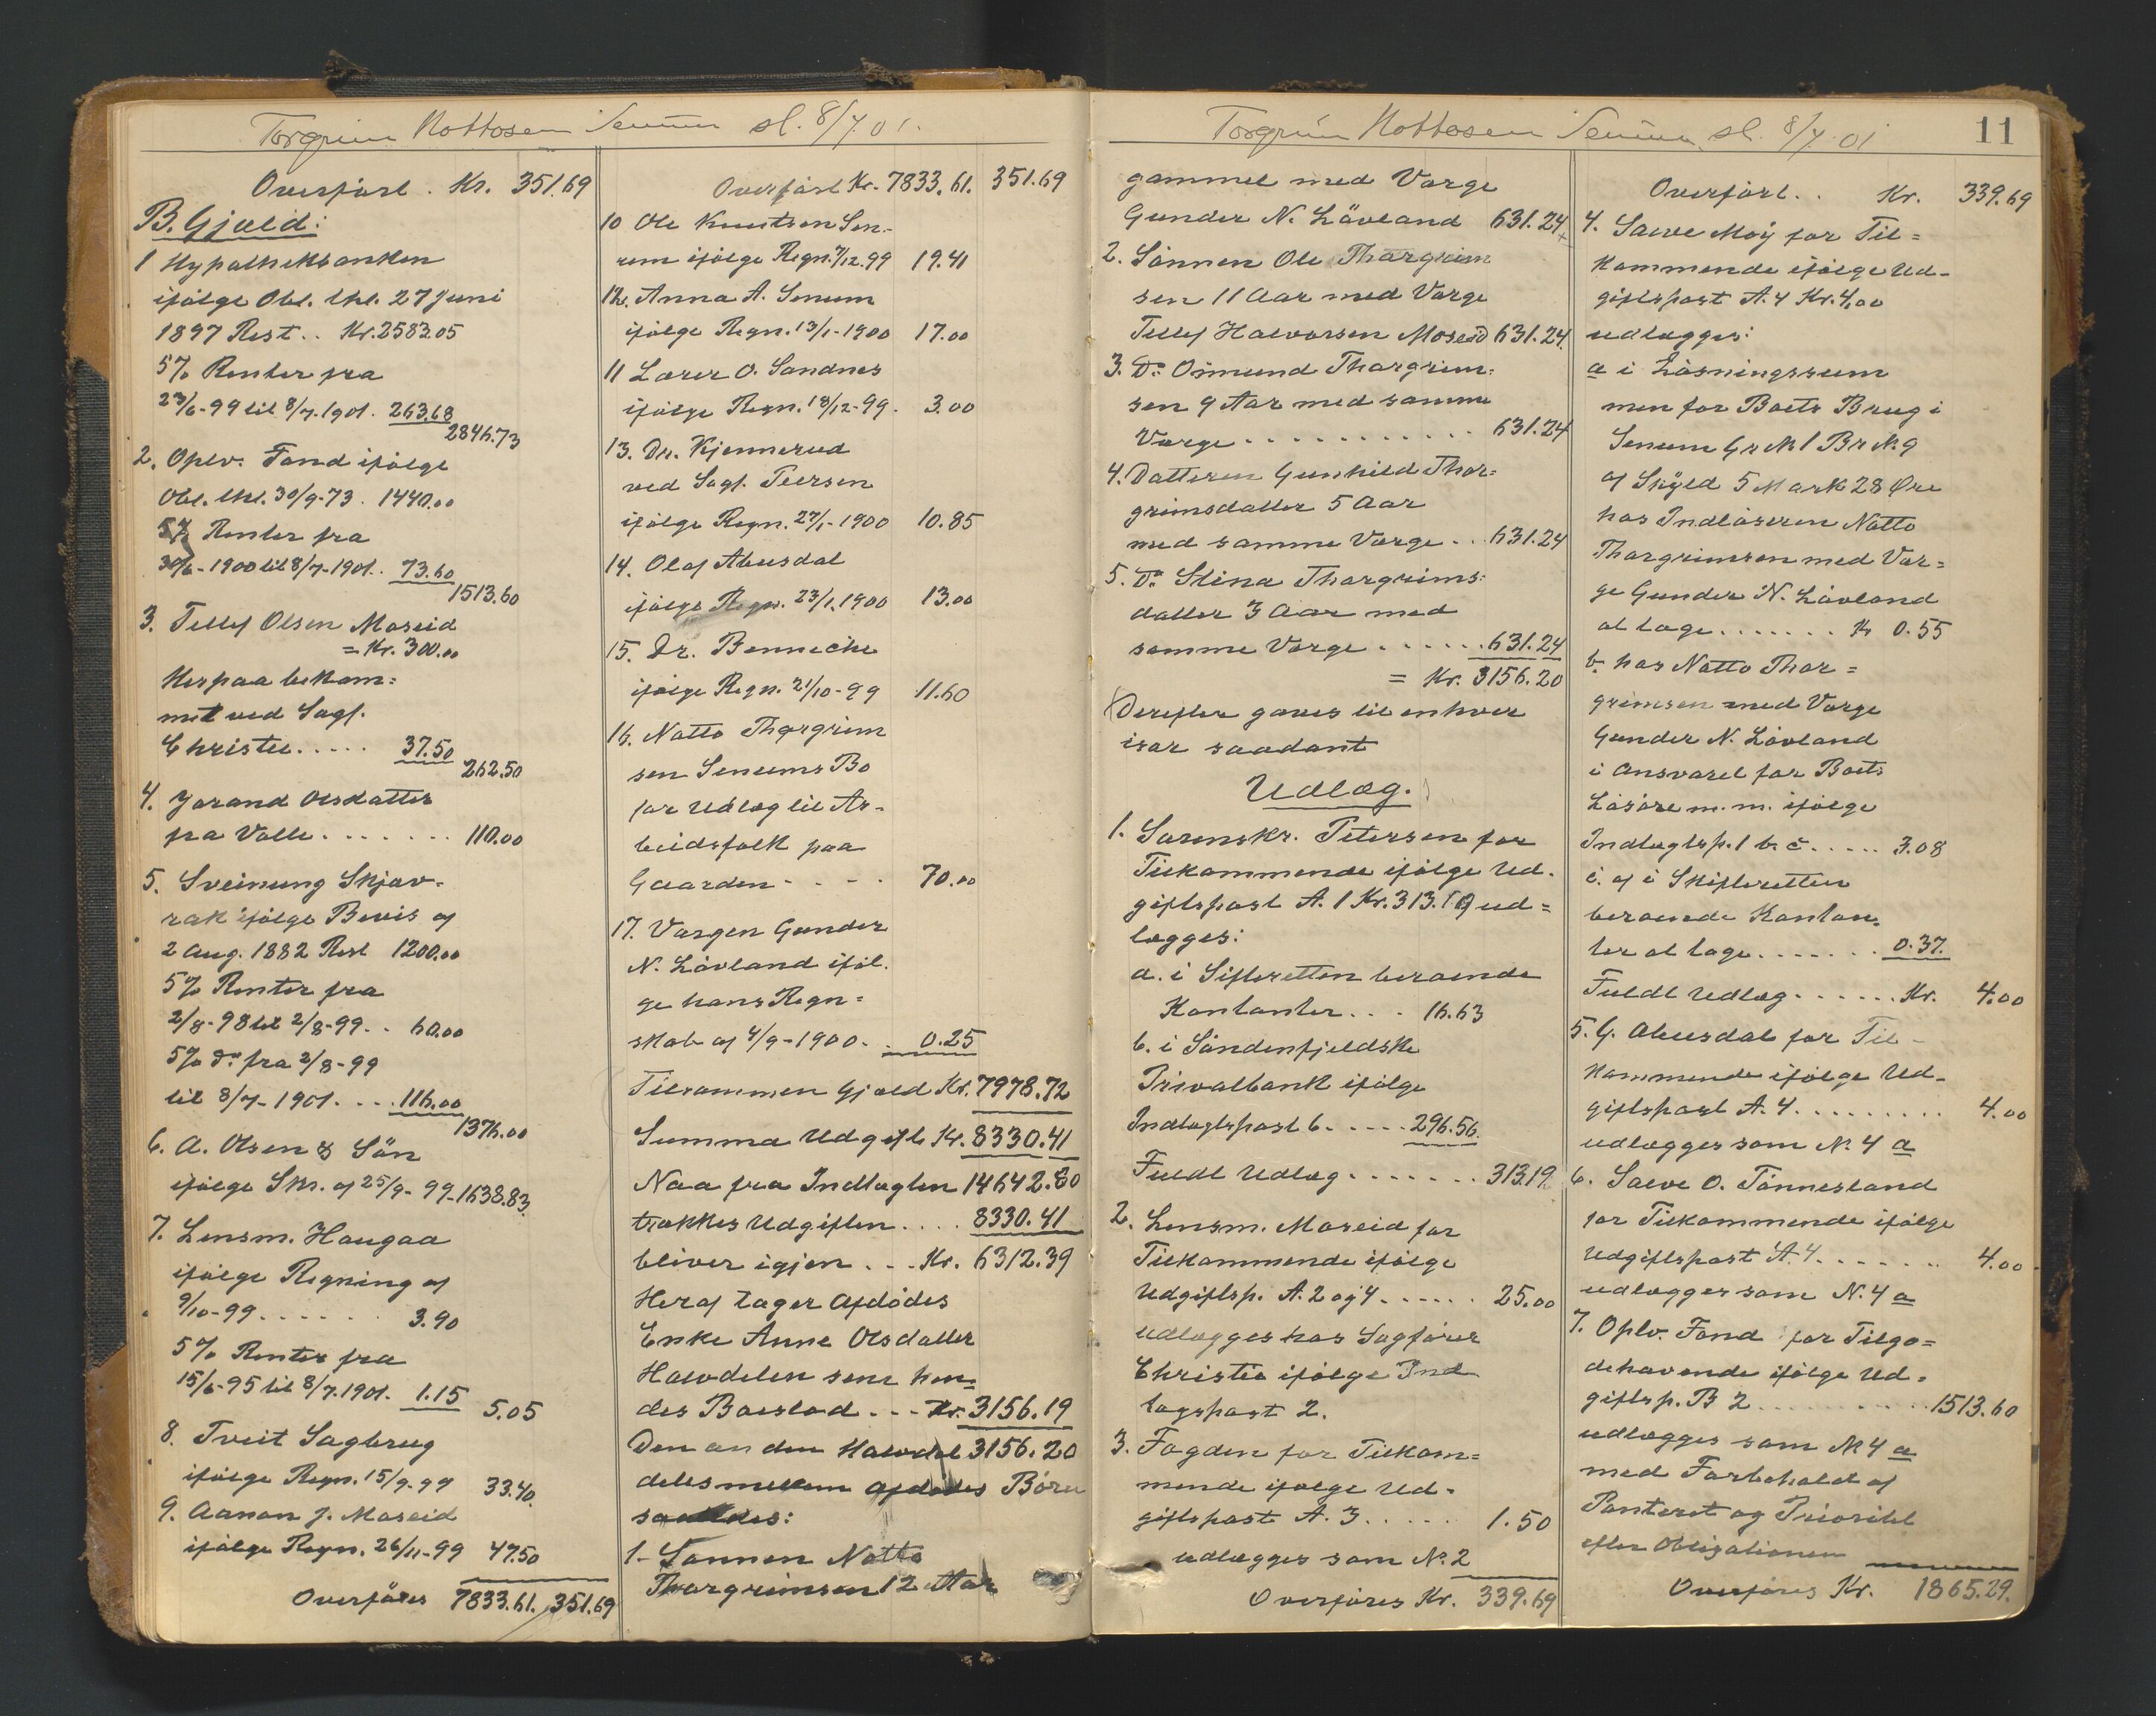 Torgrim Nottosen Senum sl. 8/7 01.
Overført . Kr. 351.69
B. Gjæld:
1 Hypothekbanken
ifølge Obl. thl. 27 Juni
1897 Rest .. Kr. 2583.05
5% Renter fra
23/6-99 til 8/7-1901. 263.68
2846.73
2. Oplv. Fond ifølge
Obl. thl. 30/9-73. 1440.00
5% Renter fra
30/6-1900 til 8/7-1901. 73.60
1513.60
3. Tellef Olsen Moseid
= Kr. 300.00
Herpaa bekom=
met ved Sagf.
Christie ..... 37.50
262.50
4. Jorand Olsdatter
fra Valle ....... 110.00
5. Sveinung Skjæv-
rak ifølge Bevis af
2 Aug. 1882 Rest 1200.00
5% Renter fra
2/8-98 til 2/8-99 .. 60.00
5% do fra 2/8-99
til 8/7-1901 .... 116.00
1376.00
6. A. Olsen & Søn
ifølge Skr. af 25/9-99 - 1638.83
7. Lensm. Haugaa
ifølge Regning af
9/10-99 ...... 3.90
5% Renter fra
15/6-95 til 8/7.1901. 1.15
5.05
8. Tveit Sagbrug
ifølge Regn. 15/9-99 33.40
9. Aanon J. Moseid
ifølge Regn. 26/11-99 47.50
Overføres 7833.61. 351.69
Overført Kr. 7833.61. 351.69
10 Ole Knutsen Sen-
rem ifølge Regn. 7/12.99 19.41
12. Anna A. Senum
ifølge Regn. 13/1-1900 17.00
11 Lærer O. Sandnes
ifølge Regn. 18/12-99. 3.00
13. Dr. Kjennerud
ved Sagf. Teersen
ifølge Regn. 27/1-1900 10.85
14. Olaf Abusdal
ifølge Regn. 23/1.1900 13.00
15. Dr. Benneche
ifølge Regn. 21/10-99 11.60
16. Notto Thorgrim
sen Senums Bo
for Udlæg til Ar-
beidsfolk paa
Gaarden - . - . 70.00
17. Værgen Gunder
N. Løvland iføl.
ge hans Regn=
skab af 4/9-1900. . 0.25
Tilsammen Gjæld Kr. 7978.72
Summa Udgift Kr. 8330.41
Naa fra Indtægten 14642.80
trækkes Udgiften .... 8330.41
bliver igjen ... Kr. 6312.39
Heraf tager Afdødes
Enke Anne Olsdatter
Halvdelen som hen=
des Boeslod ... Kr. 3156.19
Den anden Halvdel 3156.20
deles mellem Afdødes Børn
saaledes:
1. Sønnen Notto
Thorgrimsen 12 Aar
Torgrim Nottosen Senum sl. 8/7.01
11
gammel med Værge
Gunder N. Løvland 631.24
2. Sønnen Ole Thorgrim
sen 11 Aar med Værge
Tellef Halvorsen Moseid 631.24.
3. Do Omund Thorgrim=
sen 9 Aar med samme
Værge ............ 631.24
4. Datteren Gunhild Thor=
grimsdatter 5 Aar
med samme Værge ... 631.24
5. Do Stina Thorgrims=
datter 3 Aar med
samme Værge ...... 631.24
= Kr. 3156.20
Derefter gaves til enhver
især saadant
Udlæg.
1. Sorenskr. Petersen for
Tilkommende ifølge Ud-
giftspost A. 1 Kr. 313.19 ud=
lægges:
a. i Sifteretten beroende
Kontanter ... 16.63
b. i Søndenfjeldske
Privatbank ifølge
Indtægtspost 6 ..... 296.56
Fuldt Udlæg ....... 313.19
2. Lensm. Moseid for
Tilkommende ifølge
Udgiftsp. A. 2 og 4 ..... 25.00
udlægges hos Sagfører
Christie ifølge Ind
tægtspost 2.
3. Fogden for Tilkom=
mende ifølge Ud-
giftspost A. 3 ..... 1.50
udlægges som No. 2
Overføres Kr. 339.69
Overført .. Kr. 339.69
4. Salve Moÿ for Til=
kommende ifølge Ud-
giftspost A. 4 Kr. 4.00
udlægges:
a i Løsningssum
men for Boets Brug i
Senum G r No 1 Br No 9
af Skÿld 5 Mark 28 Øre
hos Indløseren Notto
Thorgrimsen med Vær=
ge Gunder N. Løvland
at tage ....... Kr 0.55
b. hos Notto Thor=
grimsen med Værge
Gunder N. Løvland
i Ansvaret for Boets
Løsøre m. m. ifølge
Indtægtsp. 1 b. c ..... 3.08
c. af i Skifteretten
beroende Kontan=
ter at tage ....... 0.37.
Fuldt Udlæg ...... Kr. 4.00
5. G. Abusdal for Til-
kommende ifølge Ud-
giftspost A. 4 ......... 4.00
udlægges som No. 4 a
6. Salve O. Tønnesland
for Tilkommende ifølge
Udgiftspost A. 4 ....... 4.00
udlægges som N. 4 a
7. Oplv. Fond for Tilgo=
dehavende ifølge Ud-
giftsp. B 2 .......... 1513.60
udlægges som No 4 a
med Forbehold af
Panteret og Prioritet
efter Obligationen
Overføres Kr. 1865.29.